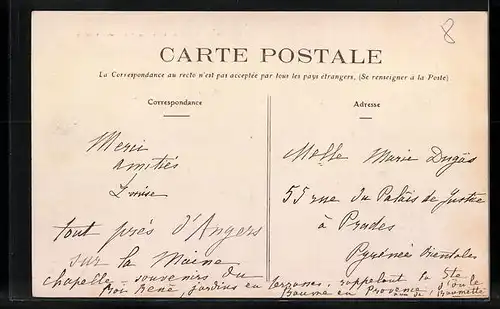 8
CARTE POSTALE
La Correspondance au recto n'est pas acceptée par tous les pays étrangers, (Se renseigner à la Poste)
Correspondance
Merci
amitiés
Louise
tout près d'Angers
sur la Maine
chapelle souvenirs du
Roi René, jardins en terrasses, rappelant la Ste
Baume en Provence, d'où le
nom de Baumette
Adresse
Melle Marie Dugas
55 rue du Palais de Justice
à Prades
Pyrénées Orientales